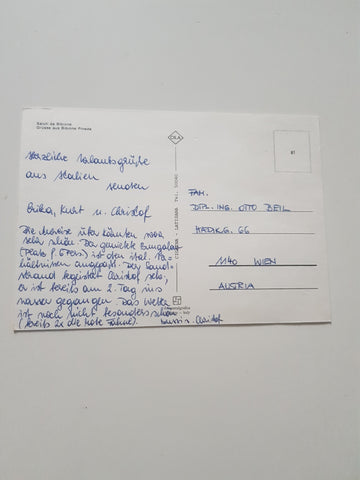 Saluti da Bibione
Grüsse aus Bibione Pineda
Herzliche Urlaubsgrüße
aus Italien
senden
Erika, Kurt u. Christof
Die Anreise über Kärnten war
sehr schön. Der gemietete Bungalow
(Platz f. 6 Pers) ist den ital. Ver-
hältnissen angepaßt. Der Sand-
strand begeistert Christof sehr,
er ist bereits am 2. Tag ins
Wasser gegangen. Das Wetter
ist noch nicht besonders schön
(bereits 2x die rote Fahne).
Christof
LATISANA Tel.
41
FAM.
DIPL. ING. OTTO BEIL
HADIKG. 66
1140 WIEN
AUSTRIA
Italy